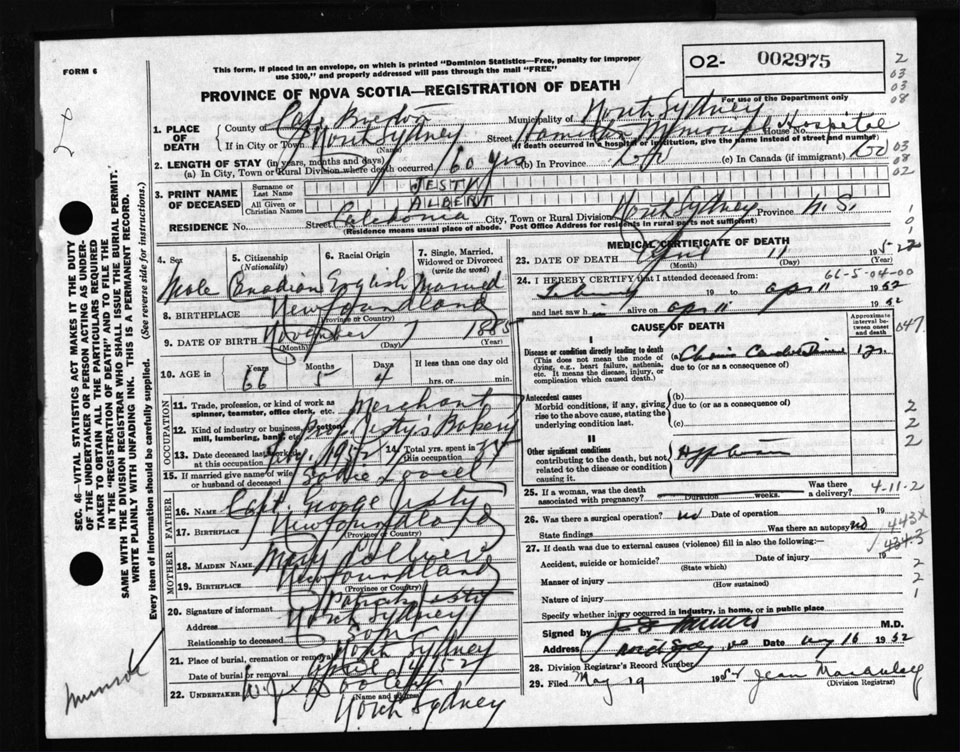 FORM 6
This form, if placed in an envelope, on which is printed "Dominion Statistics—Free, penalty for improper
use $300," and properly addressed will pass through the mail "FREE"
02- 002975
For use of the Department only
PROVINCE OF NOVA SCOTIA—REGISTRATION OF DEATH
1. PLACE OF DEATH
County of Cape Breton Municipality of North Sydney
If in City or Town North Sydney (Name) Street Hamilton Memorial Hospital House No.
(If death occurred in a hospital or institution, give the name instead of street and number)
2. LENGTH OF STAY (in years, months and days)
(a) In City, Town or Rural Division where death occurred 60 yrs (b) In Province (c) In Canada (if immigrant)
3. PRINT NAME OF DECEASED
Surname or Last Name JESTY
All Given or Christian Names ALBERT
RESIDENCE No. Street Caledonia City, Town or Rural Division North Sydney Province N.S.
(Residence means usual place of abode. Post Office Address for residents in rural parts not sufficient)
4. Sex Male
5. Citizenship (Nationality) Canadian
6. Racial Origin English
7. Single, Married, Widowed or Divorced (write the word) Married
8. BIRTHPLACE Newfoundland (Province or Country)
9. DATE OF BIRTH November 7 1885
(Month) (Day) (Year)
10. AGE in Years 66 Months 5 Days 4 If less than one day old hrs. or min.
OCCUPATION
11. Trade, profession or kind of work as spinner, teamster, office clerk, etc. Merchant
12. Kind of industry or business, as cotton mill, lumbering, bank, etc. Jesty's Bakery
13. Date deceased last worked at this occupation 1952 14. Total yrs. spent in this occupation
15. If married give name of wife or husband of deceased
FATHER
16. Name Capt. George Jesty
17. Birthplace Newfoundland (Province or Country)
MOTHER
18. Maiden Name Mary
19. Birthplace Newfoundland (Province or Country)
20. Signature of informant Jesty
Address North Sydney
Relationship to deceased Son
21. Place of burial, cremation or removal North Sydney
Date of burial or removal April 14/52
22. Undertaker W.J.
(Name and address)
North Sydney
MEDICAL CERTIFICATE OF DEATH
23. DATE OF DEATH April 11 1952
(Month) (Day) (Year)
24. I HEREBY CERTIFY that I attended deceased from:
66-5-04-00
19 to Apr 11 1952
and last saw h im alive on Apr 11 1952
CAUSE OF DEATH
Approximate interval between onset and death
I
Disease or condition directly leading to death
(This does not mean the mode of dying, e.g., heart failure, asthenia, etc. It means the disease, injury, or complication which caused death.)
(a)
due to (or as a consequence of)
Antecedent causes
Morbid conditions, if any, giving rise to the above cause, stating the underlying condition last.
(b)
due to (or as a consequence of)
(c)
II
Other significant conditions
contributing to the death, but not related to the disease or condition causing it.
25. If a woman, was the death associated with pregnancy? Duration weeks. Was there a delivery?
4-11-2
26. Was there a surgical operation? no Date of operation 19
State findings Was there an autopsy no
443X
27. If death was due to external causes (violence) fill in also the following:—
Accident, suicide or homicide? (State which) Date of injury 19
Manner of injury (How sustained)
Nature of injury
Specify whether injury occurred in industry, in home, or in public place
Signed by M.D.
Address Date 16 1952
28. Division Registrar's Record Number
29. Filed May 19 Jean
(Division Registrar)
SEC. 46—VITAL STATISTICS ACT MAKES IT THE DUTY
OF THE UNDERTAKER OR PERSON ACTING AS UNDER-
TAKER TO OBTAIN ALL THE PARTICULARS REQUIRED
IN THE "REGISTRATION OF DEATH" AND TO FILE THE
SAME WITH THE DIVISION REGISTRAR WHO SHALL ISSUE THE BURIAL PERMIT.
WRITE PLAINLY WITH UNFADING INK. THIS IS A PERMANENT RECORD.
Every item of information should be carefully supplied. (See reverse side for instructions.)